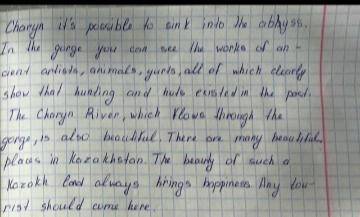 Charyn it's possible to sink into the abhyss.
In the gorge you can see the works of an-
cient artists, animals, yurts, all of which clearly
show that hunting and huts existed in the past.
The Charyn River, which flows through the
gorge, is also beautiful. There are many beautiful
places in Kazakhstan. The beauty of such a
Kazakh land always brings happiness. Any tou-
rist should come here.